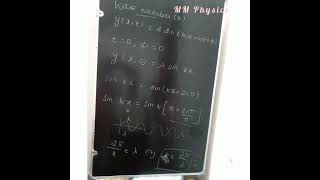 MM Physics
Wave number (k)
y(x,t) = A sin(kx - ωt + φ)
t = 0, φ = 0
y(x,0) = A sin kx
sin kx = sin(kx + 2nπ)
sin kx = sin k[x + 2nπ/k]
2π/k = λ
k = 2π/λ